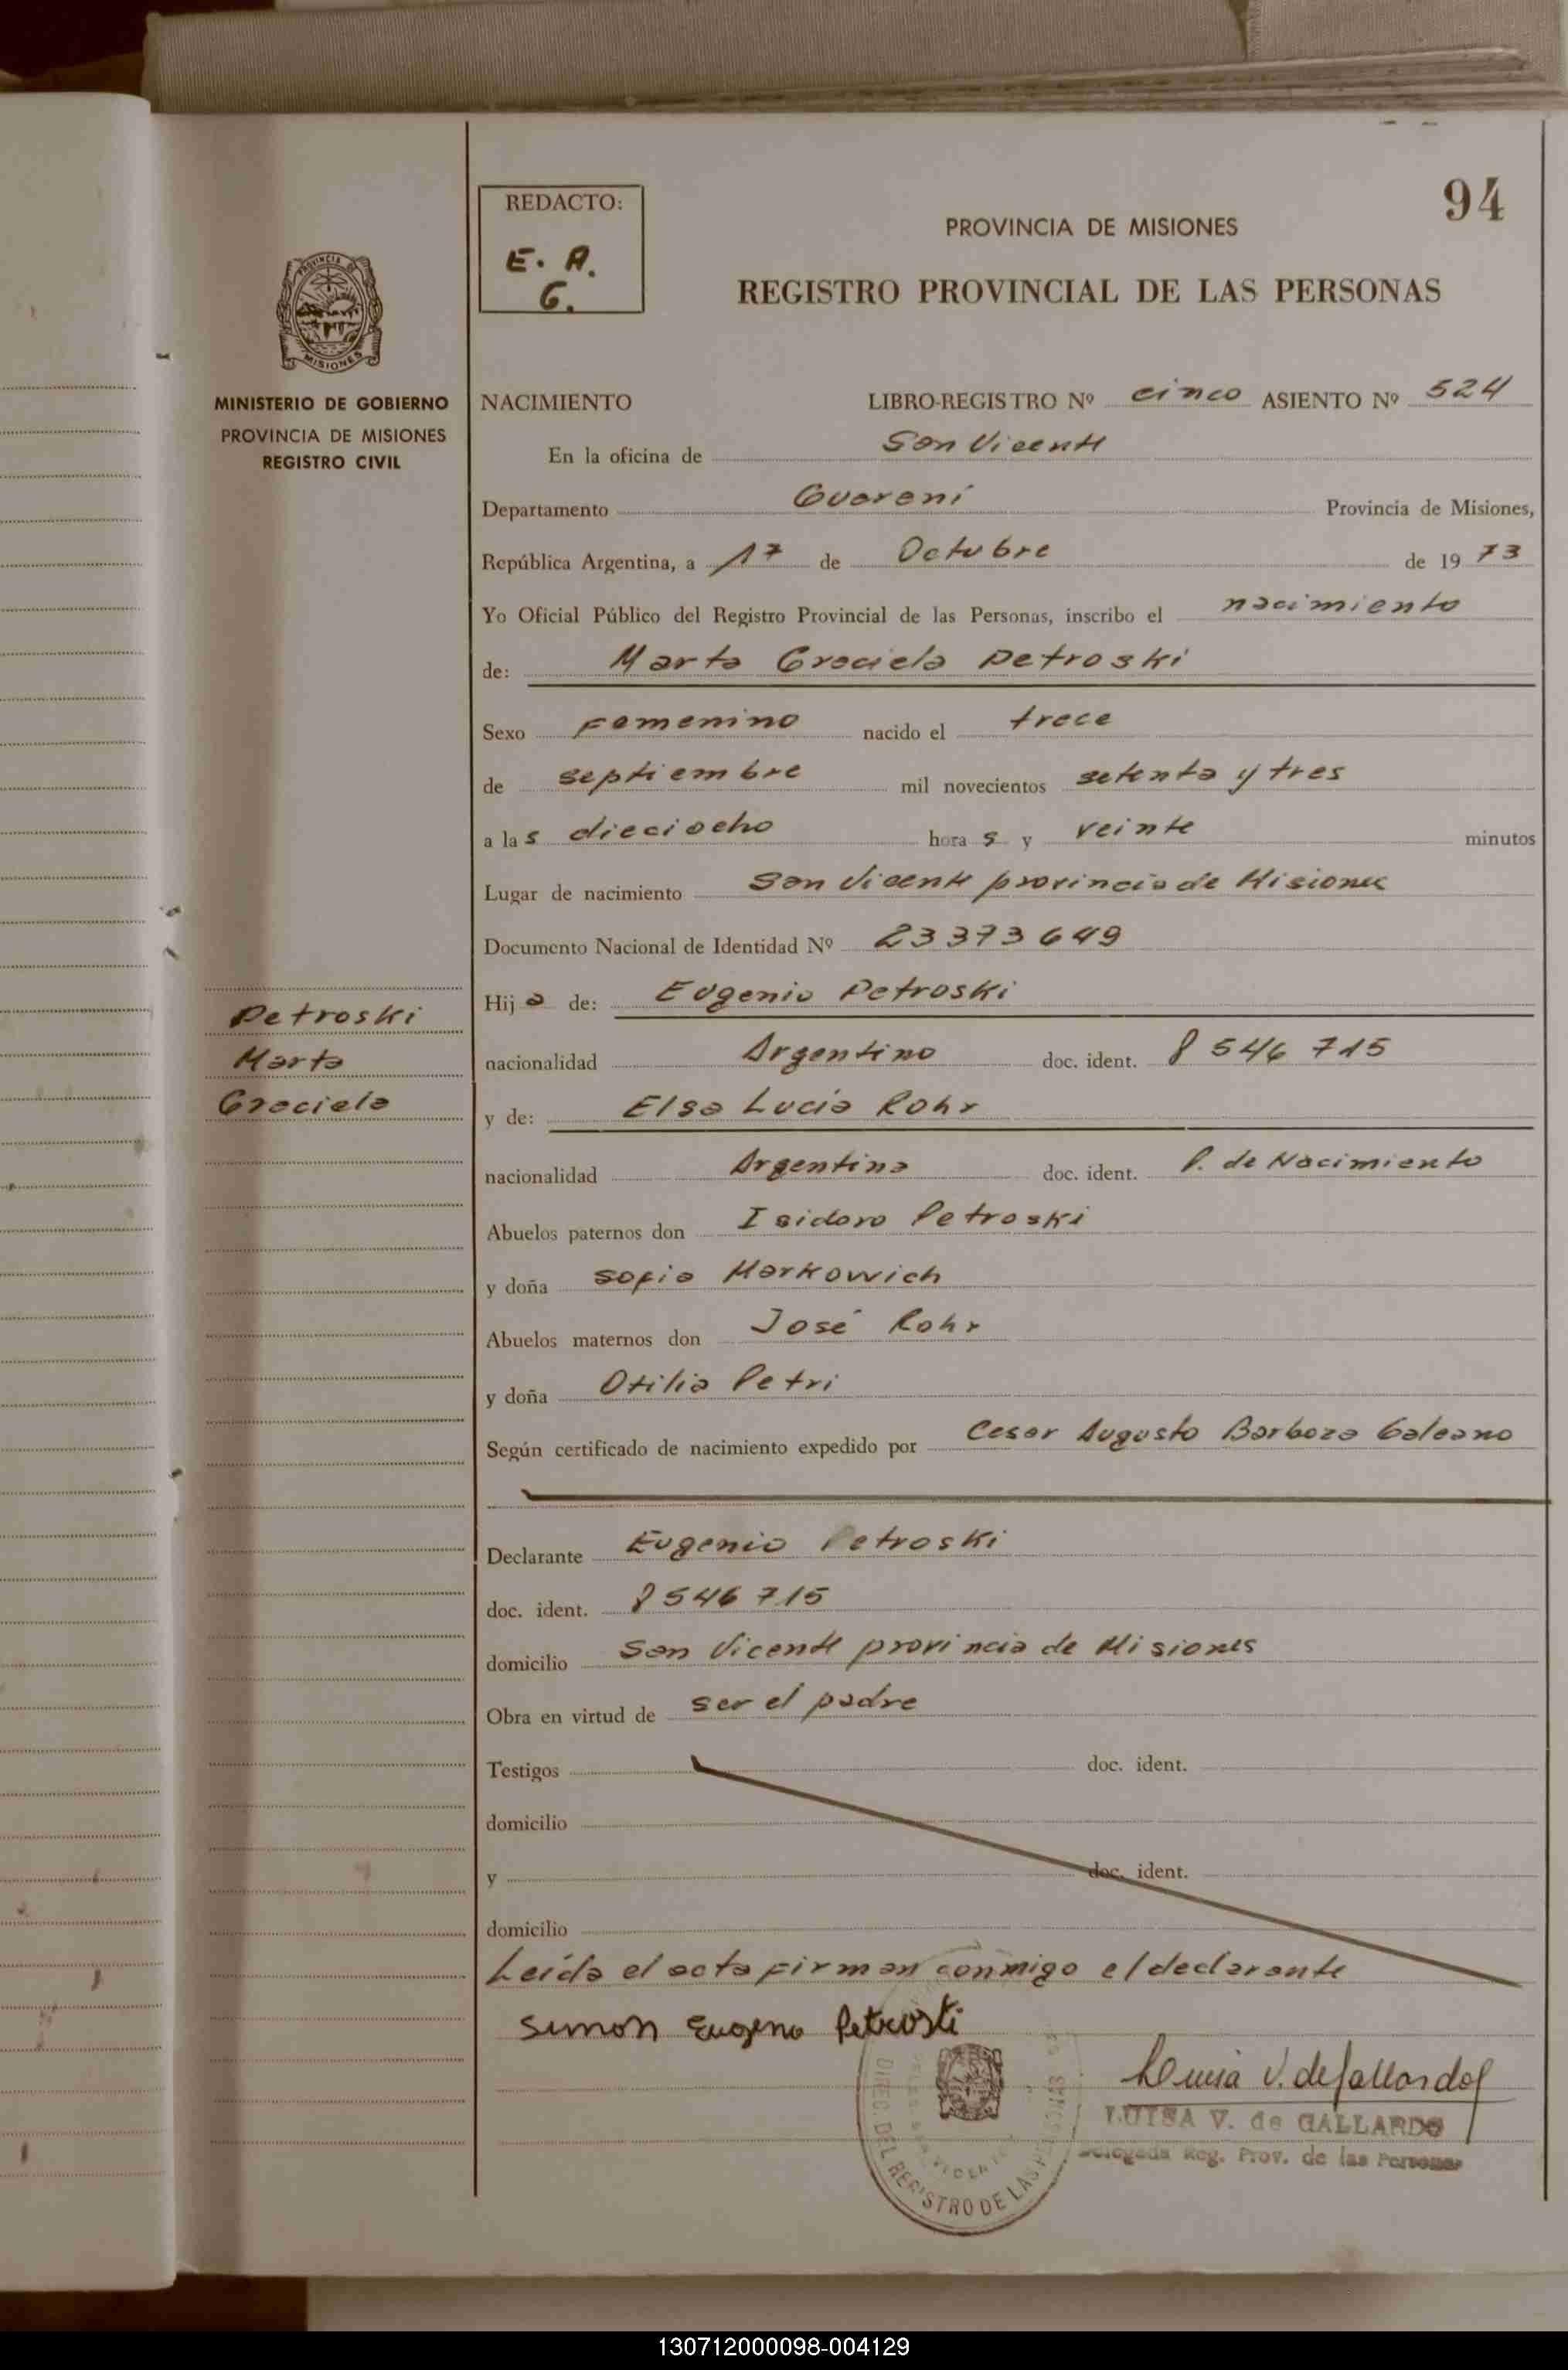 94
REDACTO:
E. A.
G.
PROVINCIA DE MISIONES
REGISTRO PROVINCIAL DE LAS PERSONAS
PROVINCIA DE
MISIONES
MINISTERIO DE GOBIERNO
PROVINCIA DE MISIONES
REGISTRO CIVIL
NACIMIENTO LIBRO-REGISTRO Nº cinco ASIENTO Nº 524
En la oficina de San Vicente
Departamento Guarani Provincia de Misiones,
República Argentina, a 17 de Octubre de 1973
Yo Oficial Público del Registro Provincial de las Personas, inscribo el nacimiento
de: Marta Graciela Petroski
Sexo Femenino nacido el trece
de septiembre mil novecientos setenta y tres
a las dieciocho horas y veinte minutos
Lugar de nacimiento San Vicente provincia de Misiones
Documento Nacional de Identidad Nº 23373649
Hija de: Eugenio Petroski
nacionalidad Argentino doc. ident. 8546715
y de: Elsa Lucia Rohr
nacionalidad Argentina doc. ident. P. de Nacimiento
Abuelos paternos don Isidoro Petroski
y doña Sofia Markowich
Abuelos maternos don José Rohr
y doña Otilia Petri
Según certificado de nacimiento expedido por Cesar Augusto Barboza Galeano
Petroski
Marta
Graciela
Declarante Eugenio Petroski
doc. ident. 8546715
domicilio San Vicente provincia de Misiones
Obra en virtud de ser el padre
Testigos doc. ident.
domicilio
y doc. ident.
domicilio
Leida el acta firman conmigo el declarante
Simon Eugenio Petroski
Luisa V. de Gallardo
LUISA V. de GALLARDO
Delegada Reg. Prov. de las Personas
DIREC. DEL REGISTRO DE LAS PERSONAS
130712000098-004129